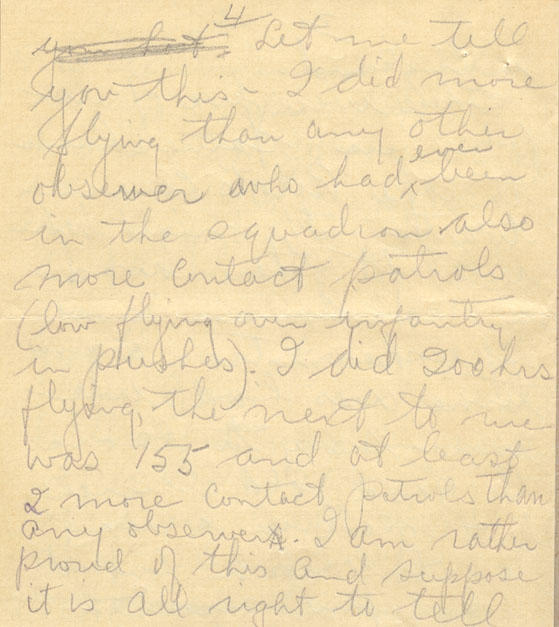 4
you hot. Let me tell
you this - I did more
flying than any other
observer who had ever been
in the squadron also
more contact patrols
(low flying over infantry
in pushes). I did 200 hrs
flying, the next to me
was 155 and at least
2 more contact patrols than
any observer. I am rather
proud of this and suppose
it is all right to tell